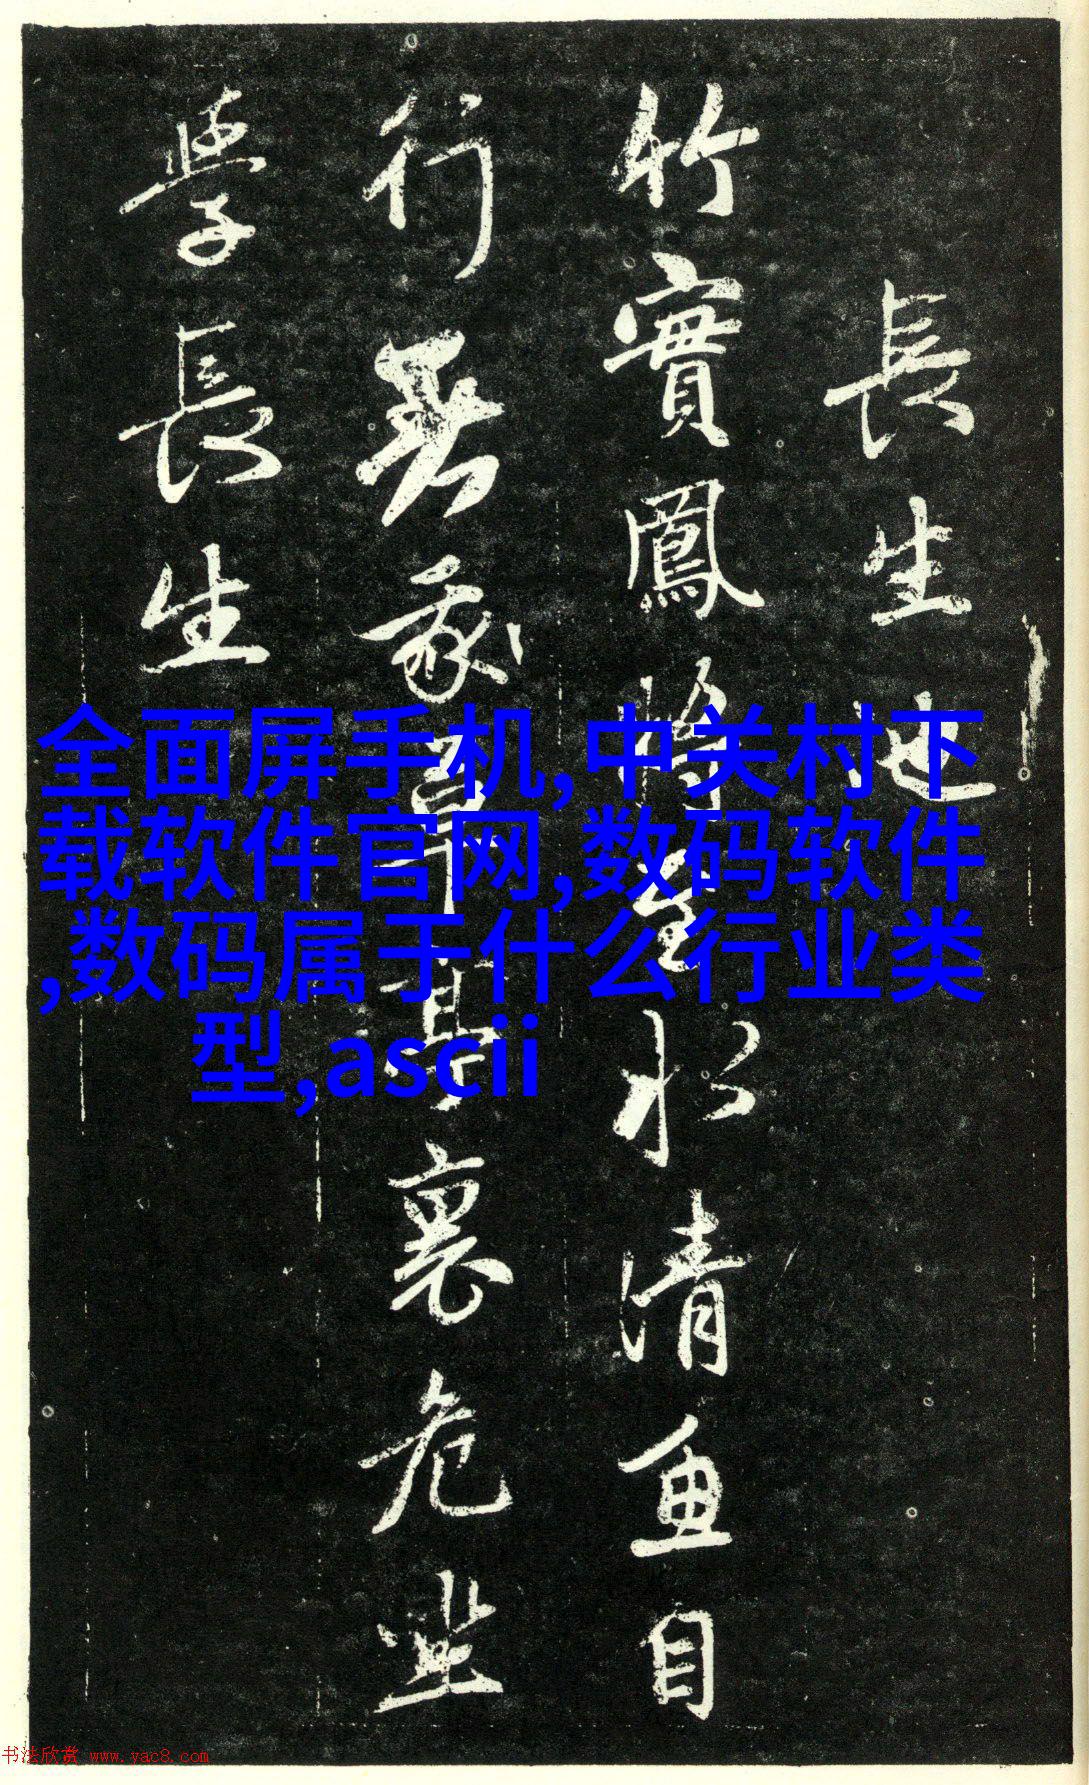 長生也
竹實鳳將至水清魚自
行 草亭裏危坐
學長生
全面屏手机,中关村下
载软件官网,数码软件
,数码属于什么行业类
型,ascii
书法欣赏 www.yac8.com